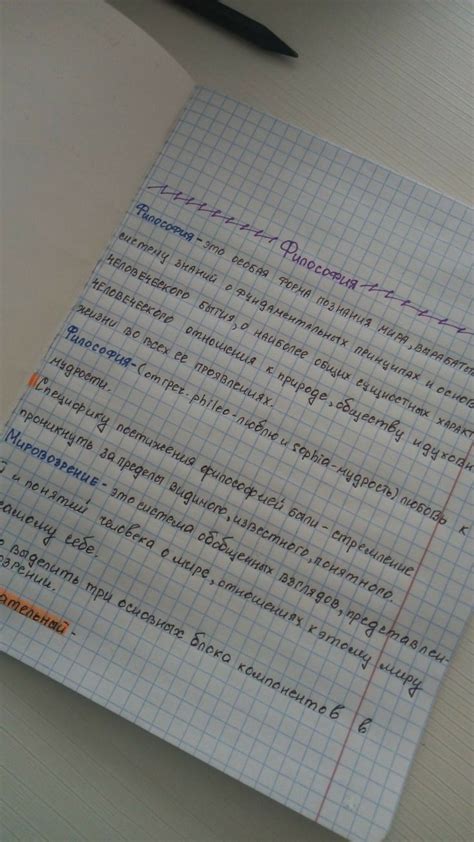 Философия
Философия - это особая форма познания мира, вырабатыв
систему знаний о фундаментальных принципах и основ
человеческого бытия, о наиболее общих сущностных характ
человеческого отношения к природе, обществу и духов
жизни во всех ее проявлениях.
Философия - (от греч. phileo - люблю и sophia - мудрость) любовь к
мудрости.
Специфику постижения философией были - стремление
проникнуть за пределы видимого, известного, понятного.
Мировозрение - это система обобщенных взглядов, представлен-
й и понятий человека о мире, отношениях к этому миру
самому себе.
о выделить три основных блока компонентов в
озрении.
ательный -